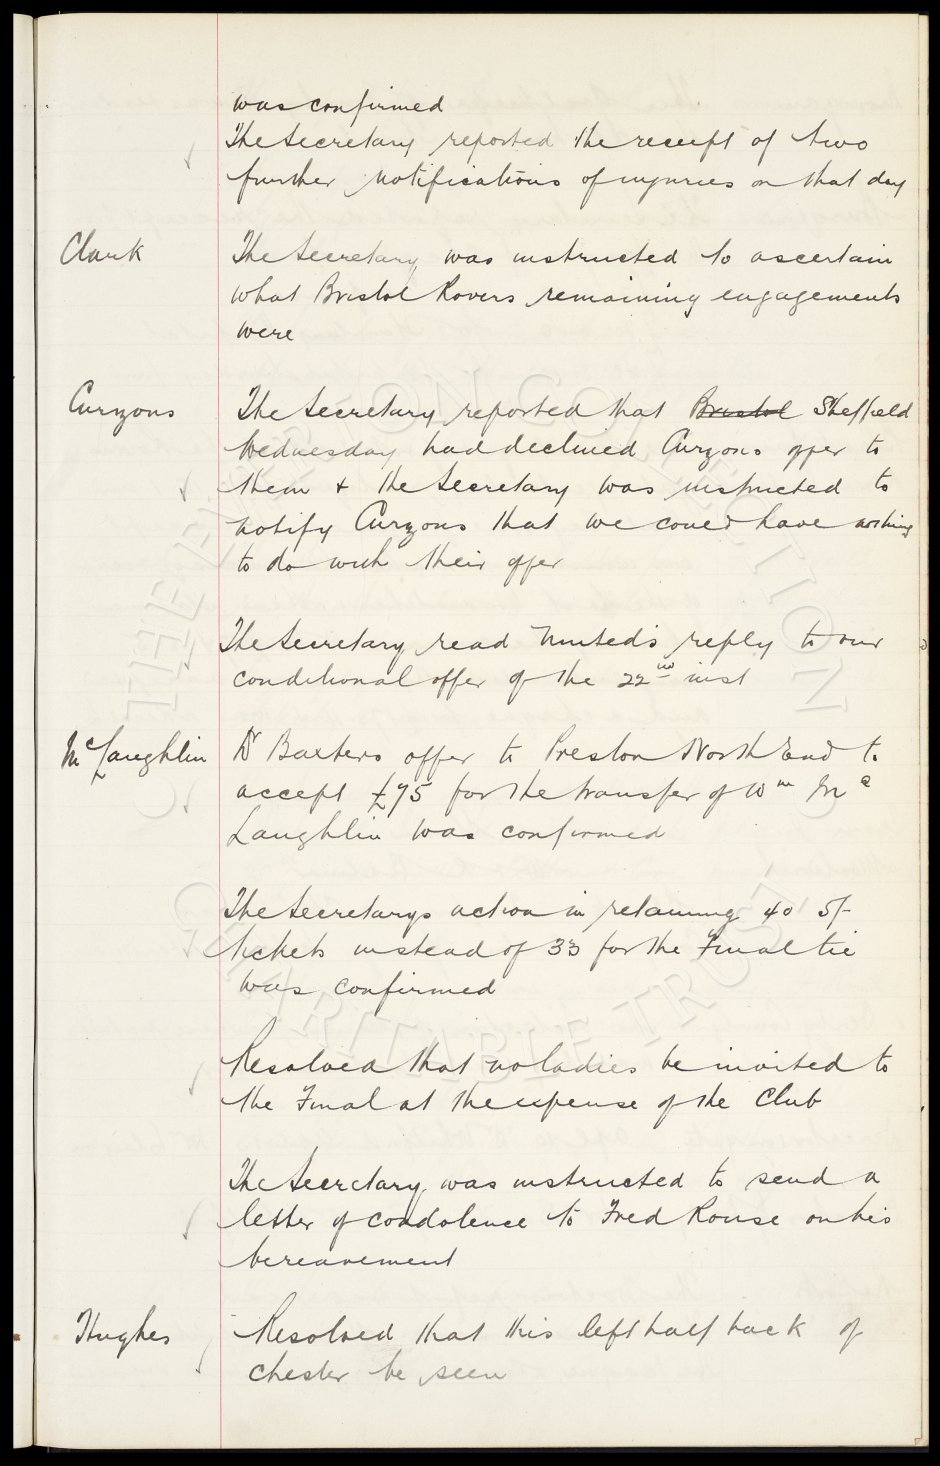 was confirmed
The Secretary reported the receipt of two
further notifications of injuries on that day
Clark
The Secretary was instructed to ascertain
what Bristol Rovers remaining engagements
were
Curzons
The Secretary reported that Bristol Sheffield
Wednesday had declined Curzons offer to
them + the Secretary was instructed to
notify Curzons that we could have nothing
to do with their offer
The Secretary read United's reply to our
conditional offer of the 22nd inst
McLaughlin
Dr Baxters offer to Preston North End to
accept £75 for the transfer of Wm Mc
Laughlin was confirmed
The Secretarys action in retaining 40 5/-
tickets instead of 33 for the Final tie
was confirmed
Resolved that no ladies be invited to
the Final at the expense of the Club
The Secretary was instructed to send a
letter of condolence to Fred Rouse on his
bereavement
Hughes
Resolved that this left half back of
Chester be seen
THE EVERTON COLLECTION
CHARITABLE TRUST